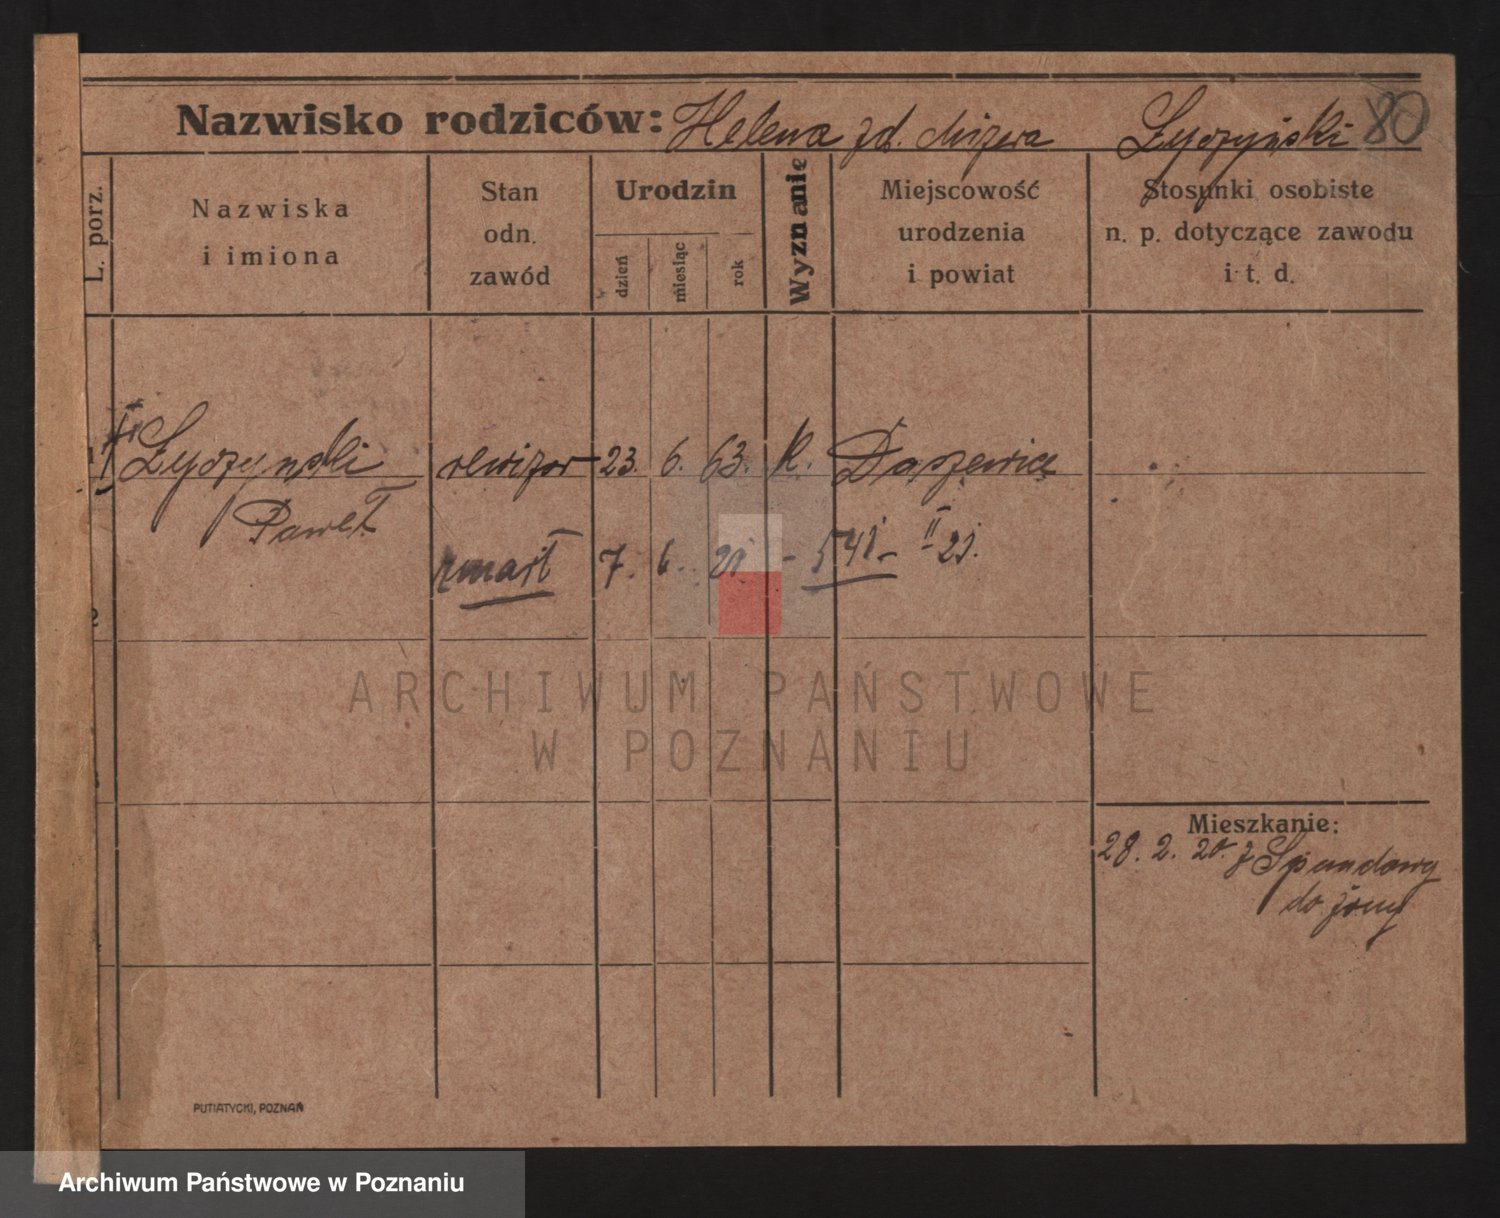 Nazwisko rodziców: Helena zd. Mizera Życzyński 80
L. porz.
Nazwiska
i imiona
Stan
odn.
zawód
Urodzin
dzień
miesiąc
rok
Wyznanie
Miejscowość
urodzenia
i powiat
Stosunki osobiste
n. p. dotyczące zawodu
i t. d.
Życzyński rewizor 23. 6. 63. k. Daszewice
Paweł
zmarł 7. 6. 21 - 541- II 21.
ARCHIWUM PAŃSTWOWE
W POZNANIU
Mieszkanie:
28. 2. 20. z Spandowy
do żony
PUTIATYCKI, POZNAŃ
Archiwum Państwowe w Poznaniu